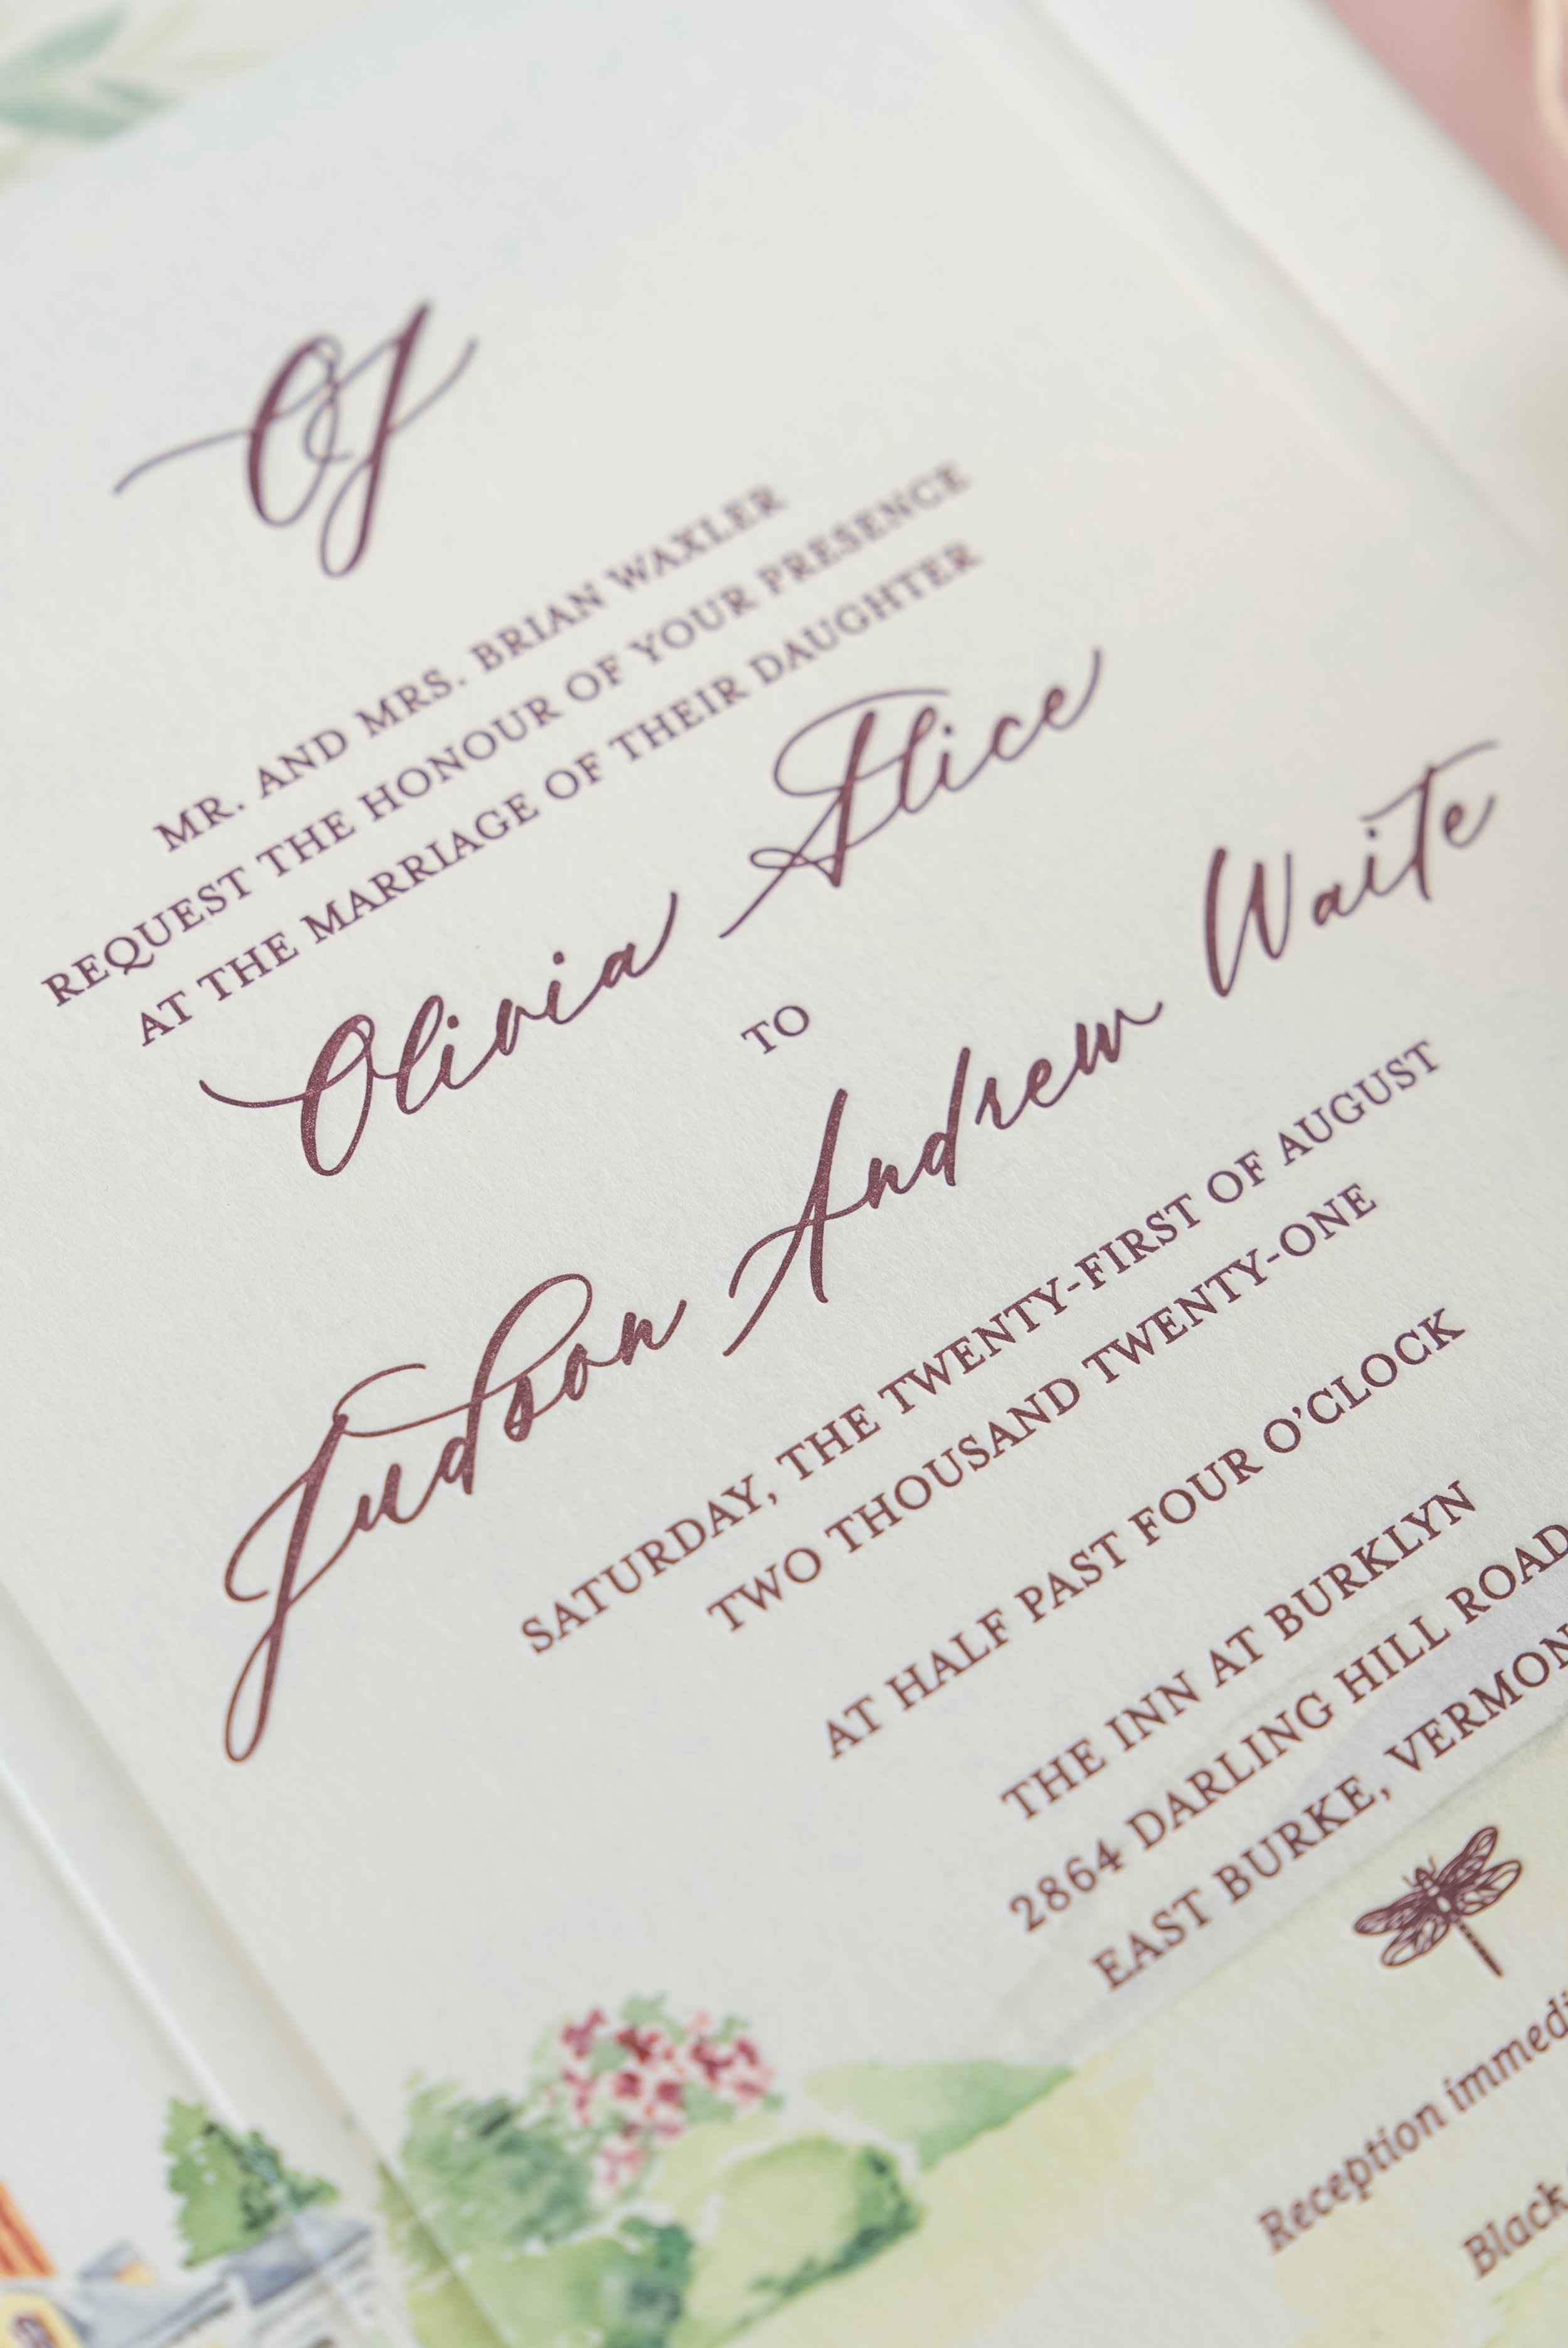 OJ
MR. AND MRS. BRIAN WAXLER
REQUEST THE HONOUR OF YOUR PRESENCE
AT THE MARRIAGE OF THEIR DAUGHTER
Olivia Alice
TO
Judson Andrew Waite
SATURDAY, THE TWENTY-FIRST OF AUGUST
TWO THOUSAND TWENTY-ONE
AT HALF PAST FOUR O'CLOCK
THE INN AT BURKLYN
2864 DARLING HILL ROAD
EAST BURKE, VERMON
Reception immedi
Black